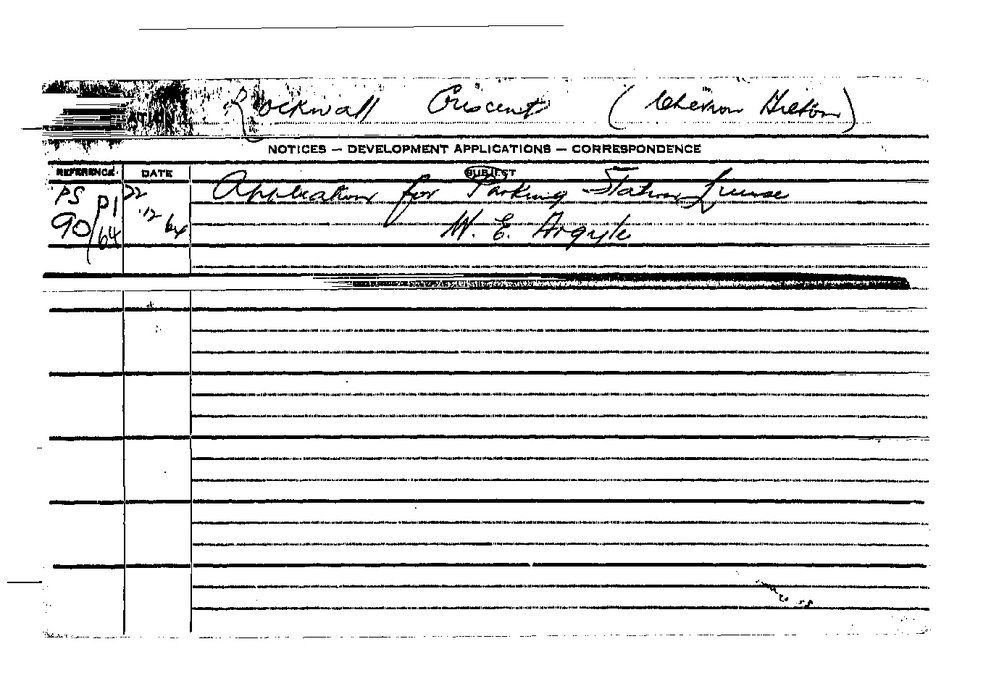 Rockwall Crescent (Chevron Hilton)
NOTICES — DEVELOPMENT APPLICATIONS — CORRESPONDENCE
REFERENCE DATE SUBJECT
PS P1 22 Application for Parking Station License
90/64 12 64 W. E. Argyle